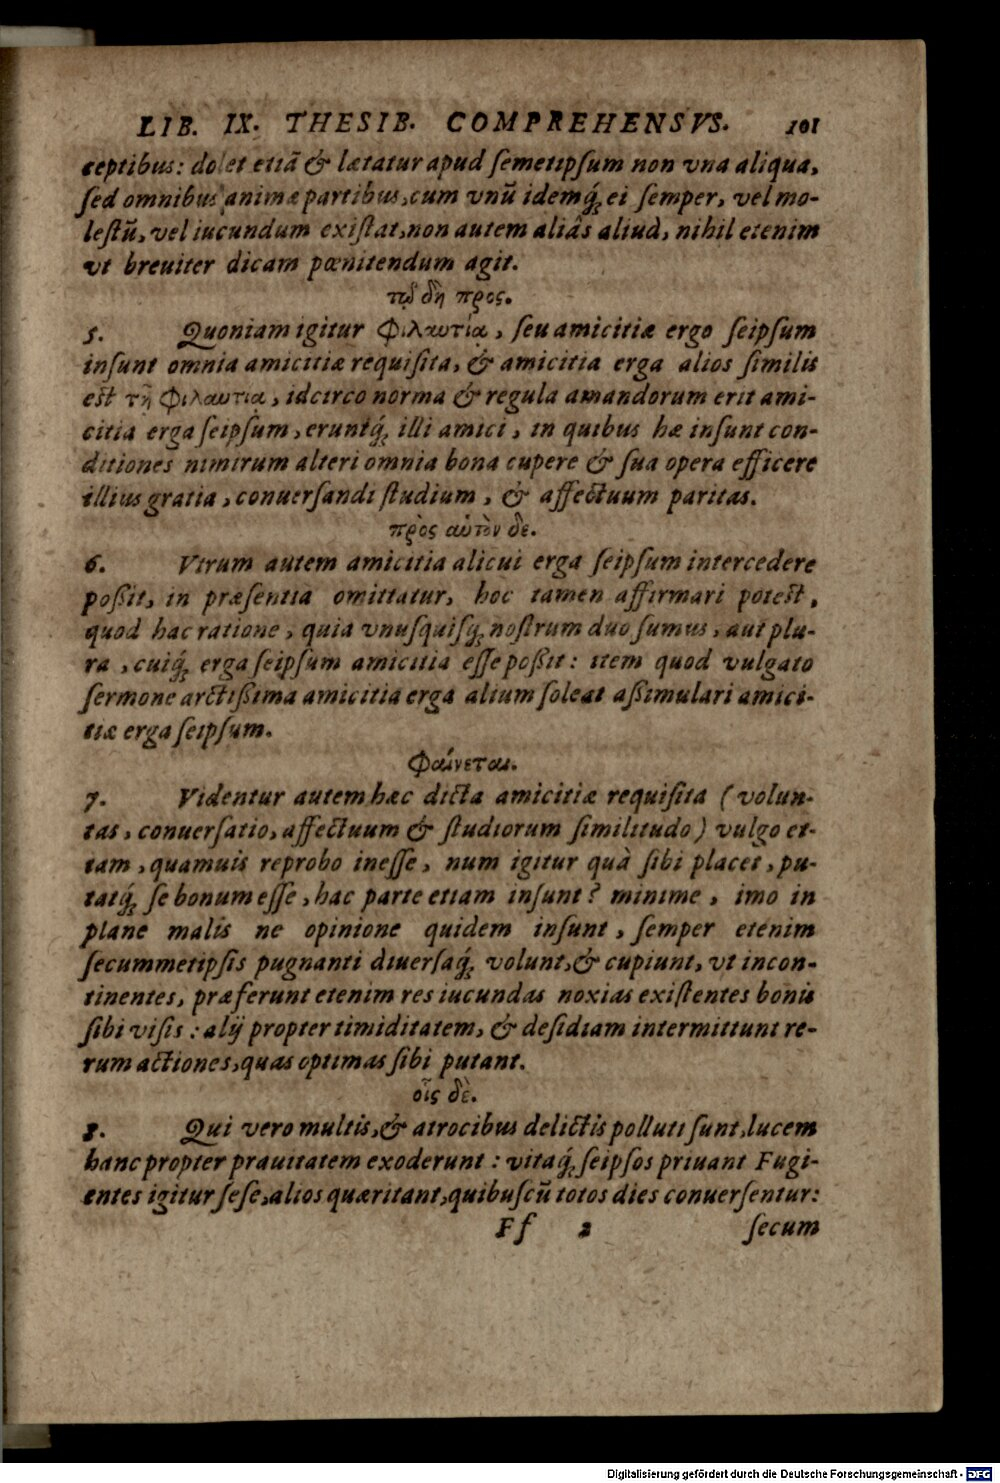 LIB. IX. THESIB. COMPREHENSVS. 101
ceptibus: dolet etiã & lætatur apud ſemetipſum non vna aliqua,
ſed omnibus animæ partibus, cum vnũ idemq́; ei ſemper, vel mo-
leſtũ, vel iucundum exiſtat, non autem aliâs aliud, nihil etenim
vt breuiter dicam pœnitendum agit.
τῷ δὴ πρὸς.
5. Quoniam igitur Φιλαυτία, ſeu amicitiæ ergo ſeipſum
inſunt omnia amicitiæ requiſita, & amicitia erga alios ſimilis
eſt τῆ Φιλαυτία, idcirco norma & regula amandorum erit ami-
citia erga ſeipſum, eruntq́; illi amici, in quibus hæ inſunt con-
ditiones nimirum alteri omnia bona cupere & ſua opera efficere
illius gratia, conuerſandi ſtudium, & affectuum paritas.
πρὸς αὑτὸν δὲ.
6. Vtrum autem amicitia alicui erga ſeipſum intercedere
poßit, in præſentia omittatur, hoc tamen affirmari poteſt,
quod hac ratione, quia vnuſquiſq; noſtrum duo ſumus, aut plu-
ra, cuiq́; erga ſeipſum amicitia eſſe poßit: item quod vulgato
ſermone arctißima amicitia erga alium ſoleat aßimulari amici-
tiæ erga ſeipſum.
Φαίνεται.
7. Videntur autem hæc dicta amicitiæ requiſita (volun-
tas, conuerſatio, affectuum & ſtudiorum ſimilitudo) vulgo et-
iam, quamuis reprobo ineſſe, num igitur quà ſibi placet, pu-
tatq́; ſe bonum eſſe, hac parte etiam inſunt? minime, imo in
plane malis ne opinione quidem inſunt, ſemper etenim
ſecummetipſis pugnanti diuerſaq́; volunt, & cupiunt, vt incon-
tinentes, præferunt etenim res iucundas noxias exiſtentes bonis
ſibi viſis: alij propter timiditatem, & deſidiam intermittunt re-
rum actiones, quas optimas ſibi putant.
οἷς δὲ.
8. Qui vero multis, & atrocibus delictis polluti ſunt, lucem
hanc propter prauitatem exoderunt: vitaq́; ſeipſos priuant Fugi-
entes igitur ſeſe, alios quæritant, quibuſcũ totos dies conuerſentur:
Ff 2 ſecum
Digitalisierung gefördert durch die Deutsche Forschungsgemeinschaft - DFG